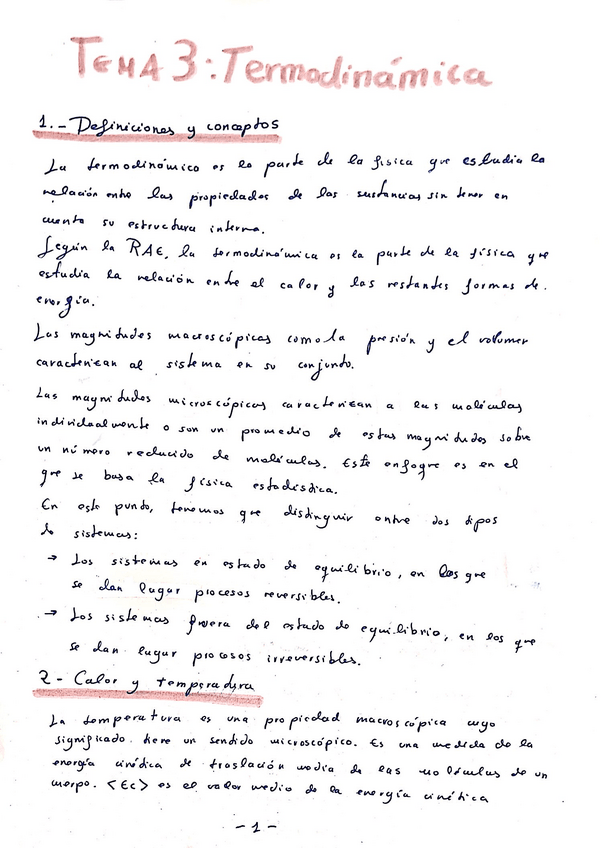 TEMA 3: Termodinámica
1.- Definiciones y conceptos
La termodinámica es la parte de la física que estudia la
relación entre las propiedades de las sustancias sin tener en
cuenta su estructura interna.
Según la RAE, la termodinámica es la parte de la física que
estudia la relación entre el calor y las restantes formas de
energía.
Las magnitudes macroscópicas como la presión y el volumen
caracterizan al sistema en su conjunto.
Las magnitudes microscópicas caracterizan a las moléculas
individualmente o son un promedio de estas magnitudes sobre
un número reducido de moléculas. Este enfoque es en el
que se basa la física estadística.
En este punto, tenemos que distinguir entre dos tipos
de sistemas:
→ Los sistemas en estado de equilibrio, en los que
se dan lugar procesos reversibles.
→ Los sistemas fuera del estado de equilibrio, en los que
se dan lugar procesos irreversibles.
2- Calor y temperatura
La temperatura es una propiedad macroscópica cuyo
significado tiene un sentido microscópico. Es una medida de la
energía cinética de traslación media de las moléculas de un
cuerpo. <Ec> es el valor medio de la energía cinética
-1-